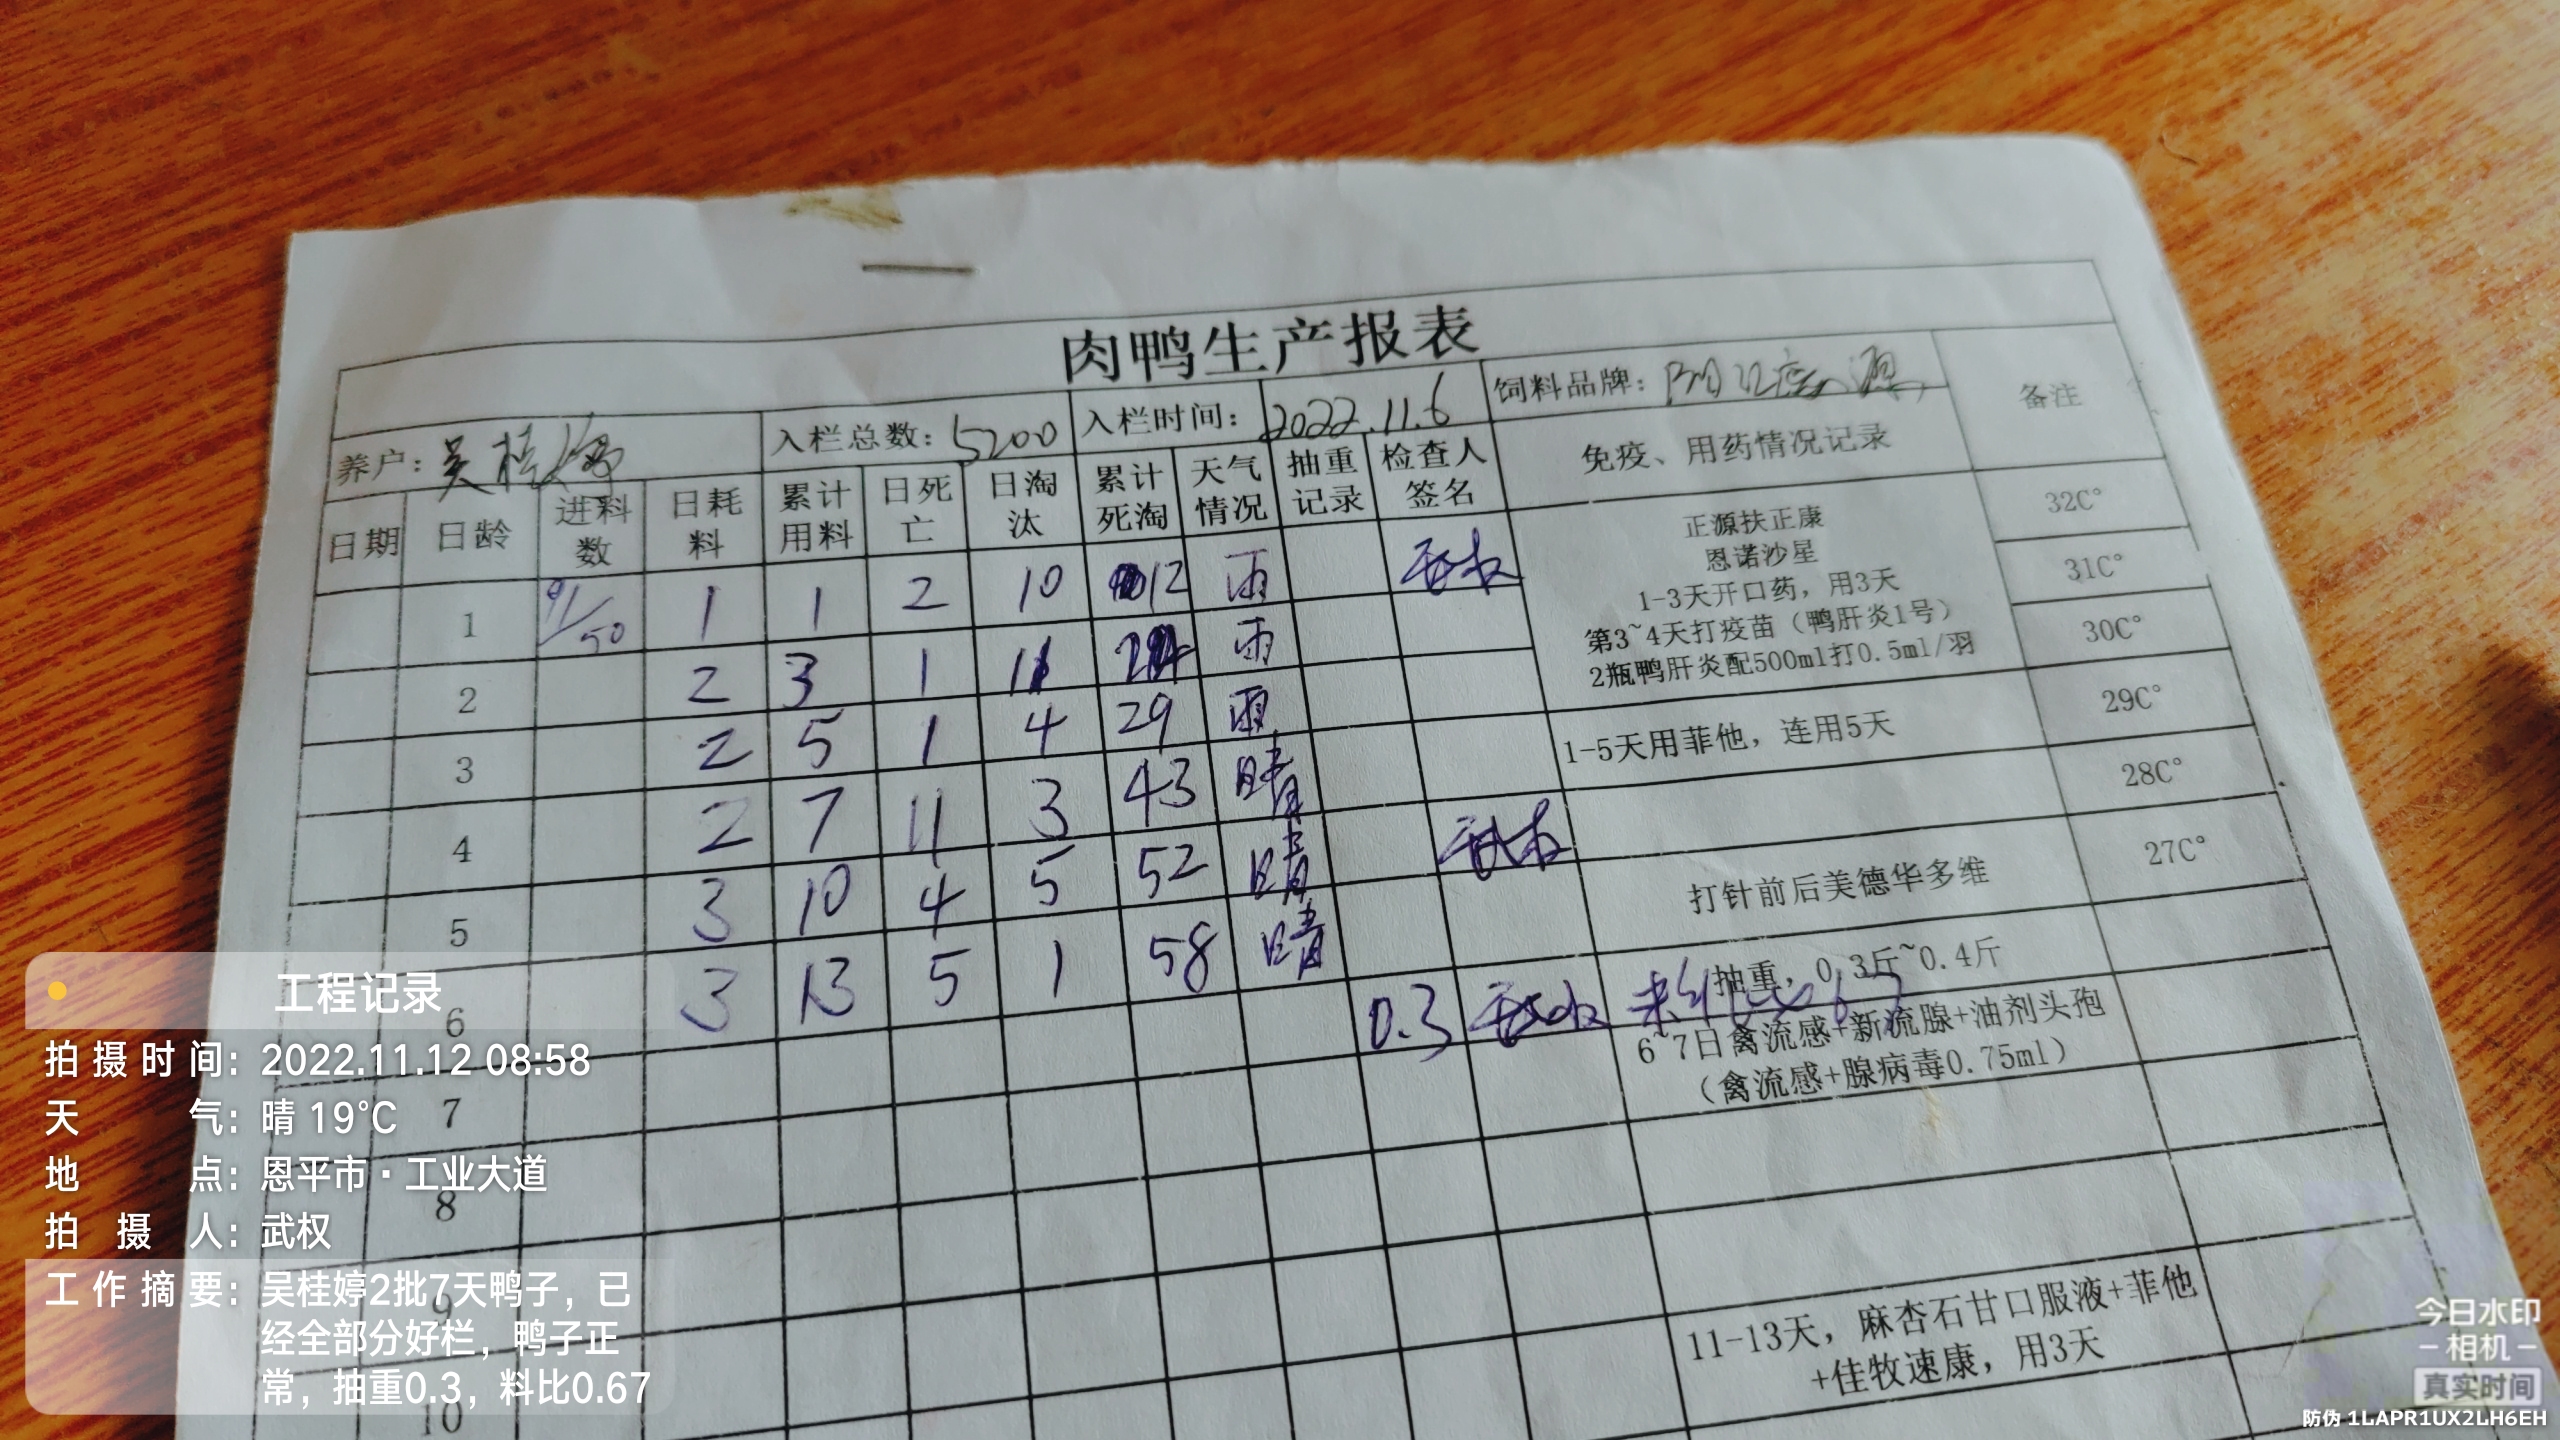 肉鸭生产报表
养户：吴桂婷 入栏总数：5200 入栏时间：2022.11.6 饲料品牌： 备注
日期 日龄 进料数 日耗料 累计用料 日死亡 日淘汰 累计死淘 天气情况 抽重记录 检查人签名 免疫、用药情况记录
1 91/50 1 1 2 10 12 雨 武权
2 2 3 1 11 24 雨
3 2 5 1 4 29 雨
4 2 7 11 3 43 晴
5 3 10 4 5 52 晴 武权
6 3 13 5 1 58 晴
7 0.3 武权
8
9
10
正源扶正康
恩诺沙星
1-3天开口药，用3天
第3~4天打疫苗（鸭肝炎1号）
2瓶鸭肝炎配500ml打0.5ml/羽
1-5天用菲他，连用5天
打针前后美德华多维
抽重，0.3斤~0.4斤
6~7日禽流感+新流腺+油剂头孢
（禽流感+腺病毒0.75ml）
11-13天，麻杏石甘口服液+菲他
+佳牧速康，用3天
32C°
31C°
30C°
29C°
28C°
27C°
工程记录
拍摄时间：2022.11.12 08:58
天气：晴 19℃
地点：恩平市·工业大道
拍摄人：武权
工作摘要：吴桂婷2批7天鸭子，已
经全部分好栏，鸭子正
常，抽重0.3，料比0.67
今日水印
-相机-
真实时间
防伪 1LAPR1UX2LH6EH